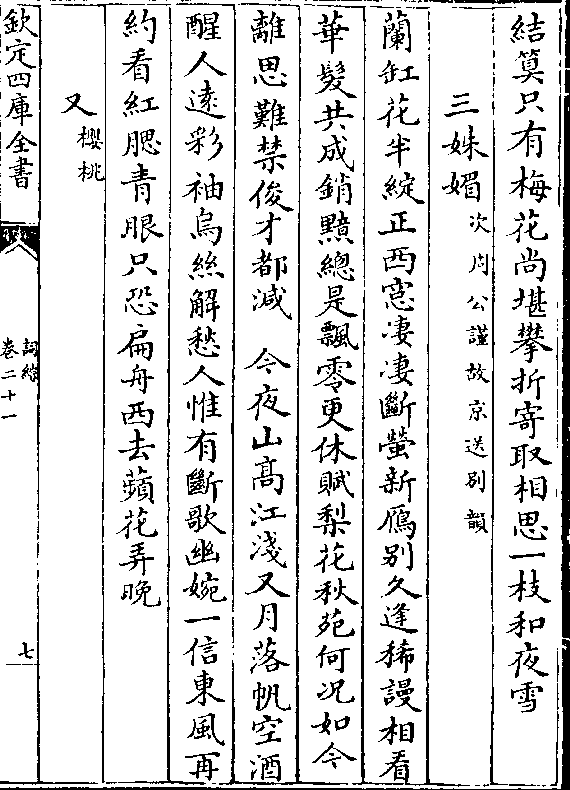 結算只有梅花尚堪攀折寄取相思一枝和夜雪
三姝媚次周公謹故京送别韻
蘭缸花半綻正西窻凄凄斷螢新鴈别久逢稀謾相看
華髮共成銷黯總是飄零更休賦梨花秋苑何况如今
離思難禁俊才都減　今夜山高江淺又月落帆空酒
醒人逺彩袖烏絲解愁人惟有斷歌幽婉一信東風再
約看紅腮青眼只恐扁舟西去蘋花弄晚
又櫻桃
欽定四庫全書
詞綜
卷二十一
七